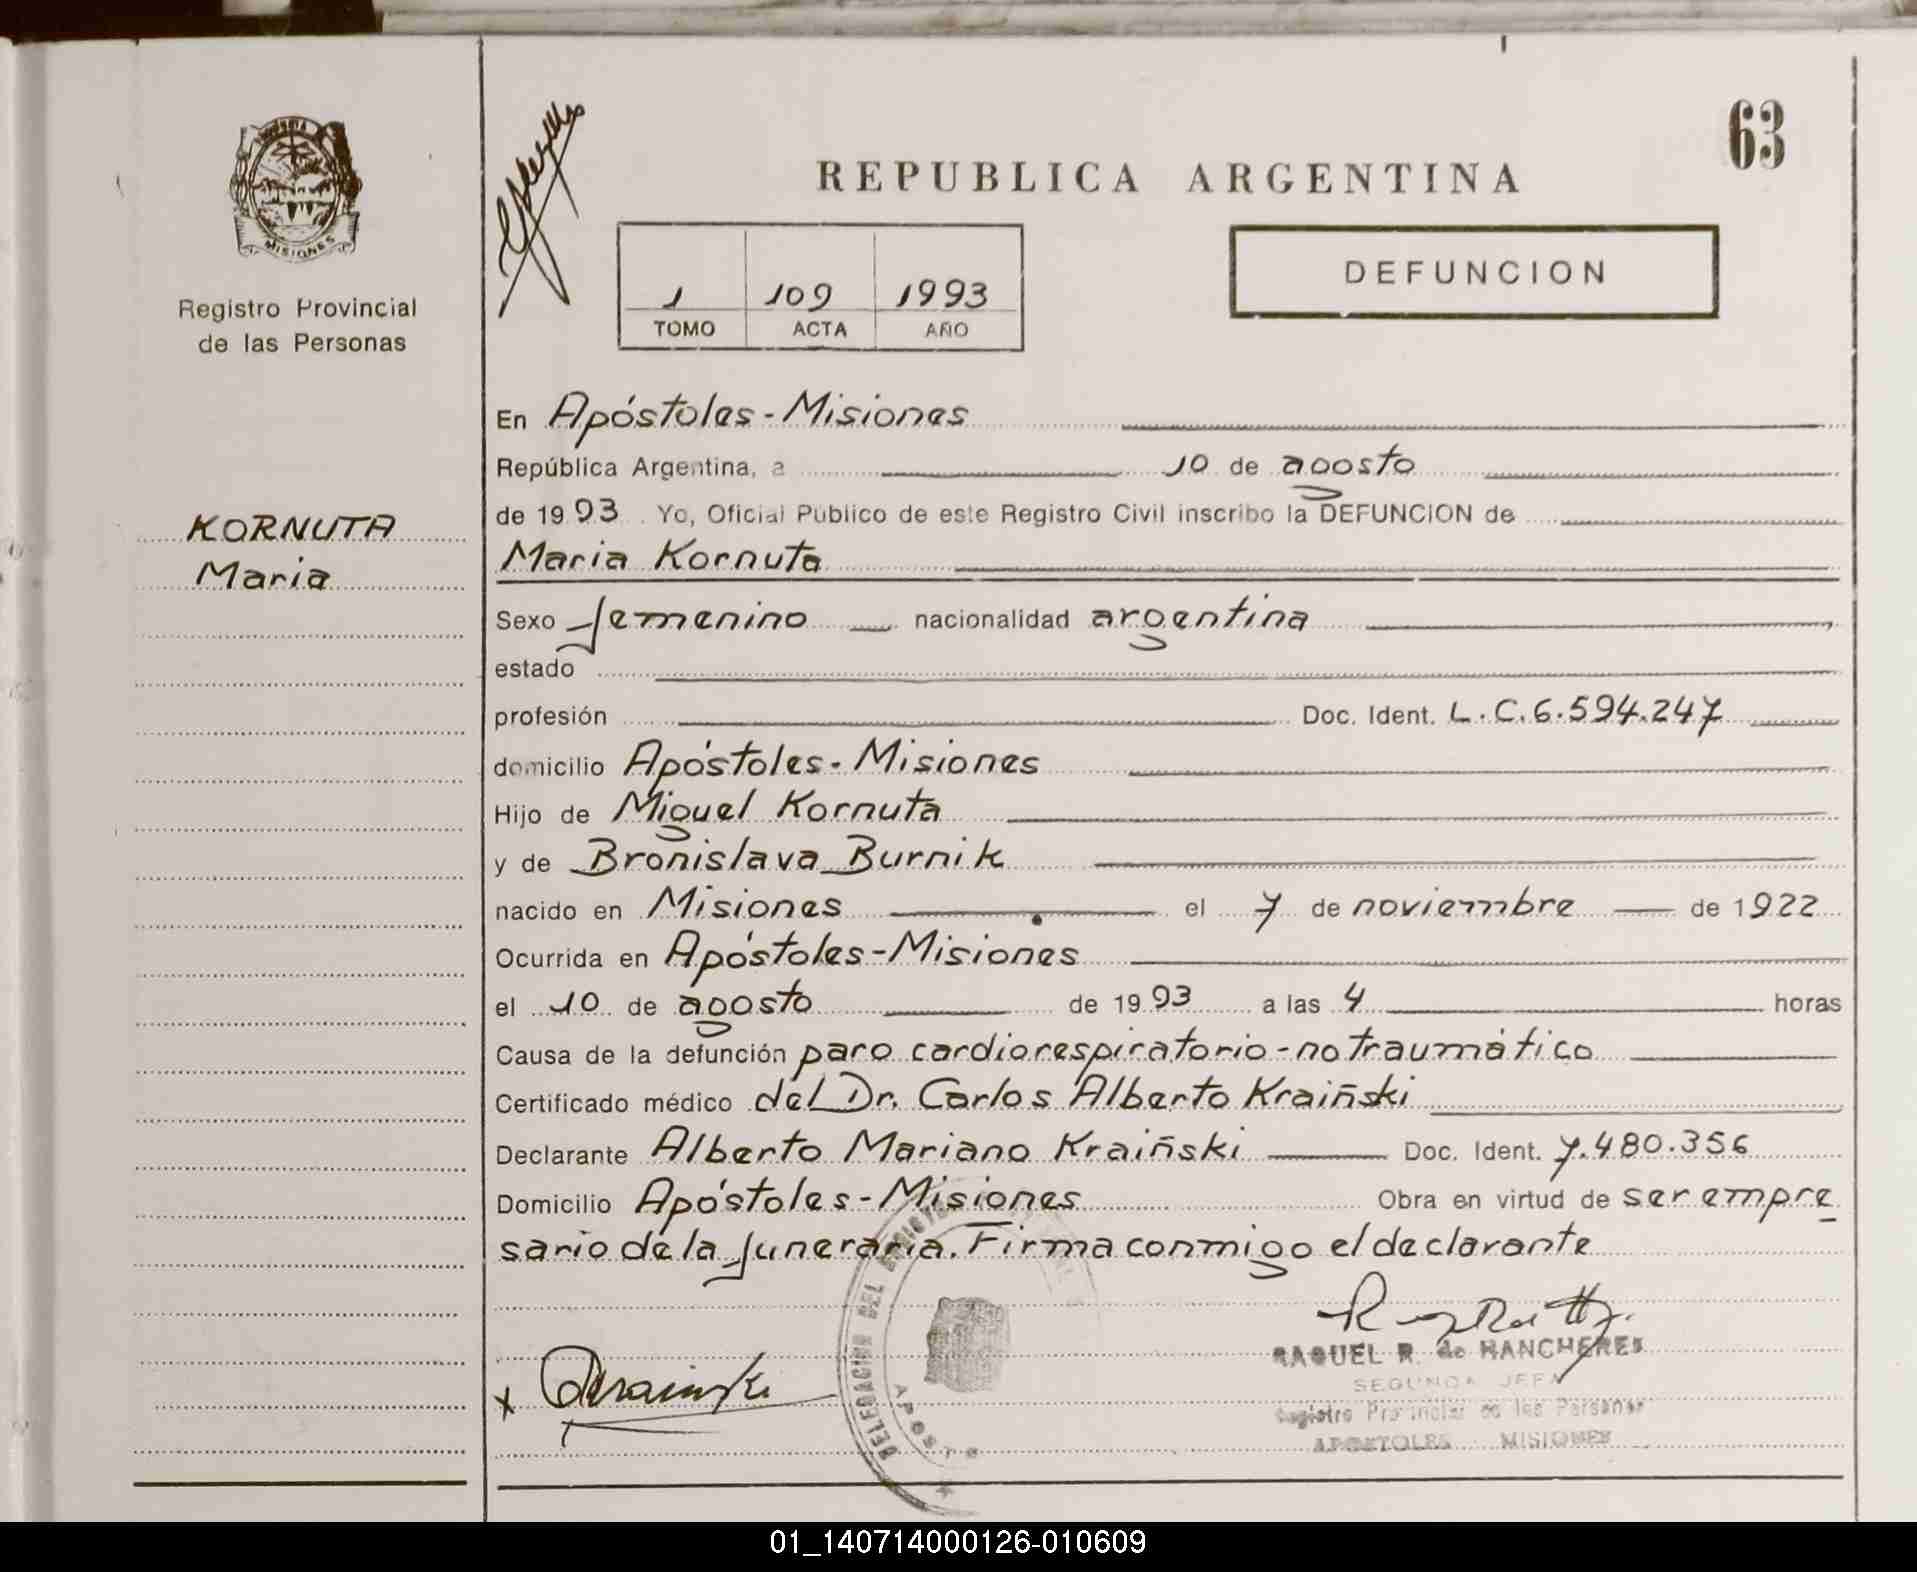 63
REPUBLICA ARGENTINA
MISIONES
Registro Provincial
de las Personas
1 109 1993
TOMO ACTA AÑO
DEFUNCION
KORNUTA
Maria
En Apóstoles-Misiones
República Argentina, a 10 de agosto
de 1993. Yo, Oficial Público de este Registro Civil inscribo la DEFUNCION de
Maria Kornuta
Sexo femenino nacionalidad argentina
estado
profesión Doc. Ident. L.C.6.594.247
domicilio Apóstoles-Misiones
Hijo de Miguel Kornuta
y de Bronislava Burnik
nacido en Misiones el 7 de noviembre de 1922
Ocurrida en Apóstoles-Misiones
el 10 de agosto de 1993 a las 4 horas
Causa de la defunción paro cardiorespiratorio-no traumático
Certificado médico del Dr. Carlos Alberto Kraiñski
Declarante Alberto Mariano Kraiñski Doc. Ident. 7.480.356
Domicilio Apóstoles-Misiones Obra en virtud de ser empre
sario de la funeraria. Firma conmigo el declarante
RAQUEL R. de HANCHERES
SEGUNDA JEFA
Registro Provincial de las Personas
APOSTOLES MISIONES
DELEGACION DEL
APOSTO
01_140714000126-010609